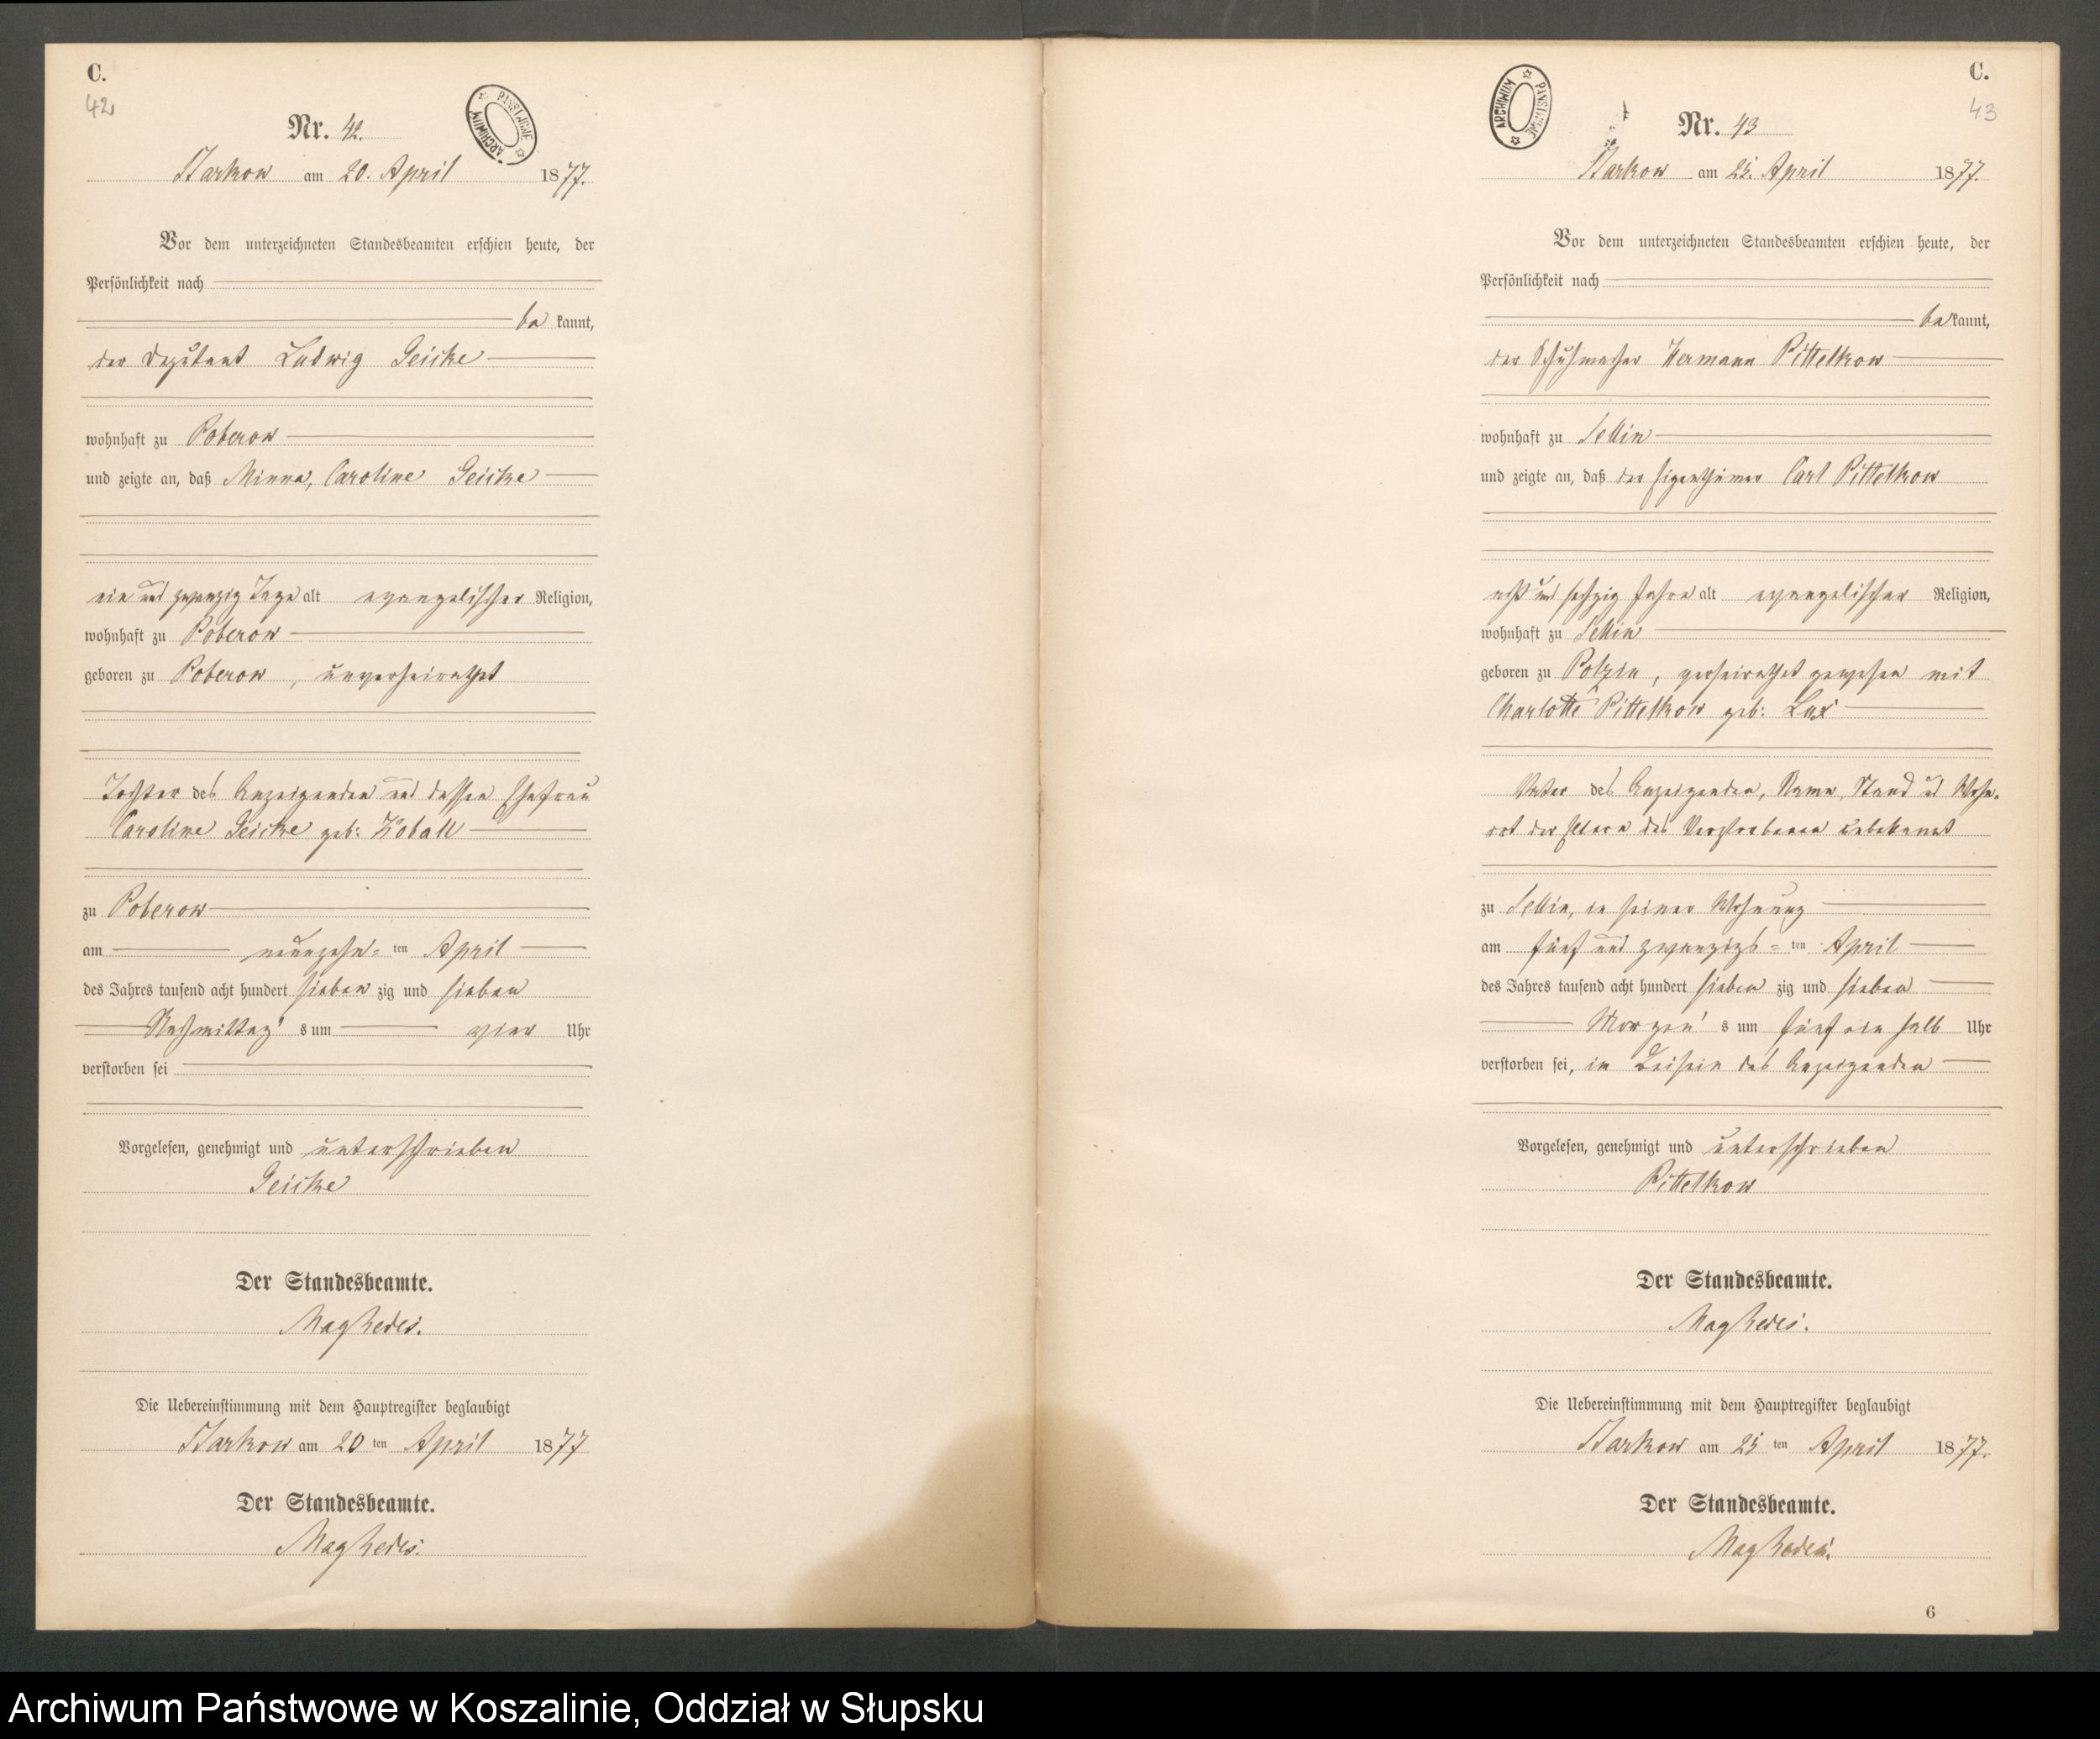 C.
42
Nr. 42.
ARCHIWUM PAŃSTWOWE
Starkow am 20. April 1877.
Vor dem unterzeichneten Standesbeamten erschien heute, der
Persönlichkeit nach
be kannt,
der Deputant Ludwig Geicke
wohnhaft zu Poberow
und zeigte an, daß Minna, Caroline Geicke
ein und zwanzig Tage alt evangelischer Religion,
wohnhaft zu Poberow
geboren zu Poberow, unverheirathet
Tochter des Anzeigenden und dessen Ehefrau
Caroline Geicke geb: Koball
zu Poberow
am neunzehn= ten April
des Jahres tausend acht hundert sieben zig und sieben
Nachmittag s um vier Uhr
verstorben sei
Vorgelesen, genehmigt und unterschrieben
Geicke
Der Standesbeamte.
Die Uebereinstimmung mit dem Hauptregister beglaubigt
Starkow am 20 ten April 1877
Der Standesbeamte.
C.
43
Nr. 43
ARCHIWUM PAŃSTWOWE
Starkow am 25. April 1877.
Vor dem unterzeichneten Standesbeamten erschien heute, der
Persönlichkeit nach
be kannt,
der Schuhmacher Hermann Pittelkow
wohnhaft zu Sellin
und zeigte an, daß der Eigenthümer Carl Pittelkow
acht und sechzig Jahre alt evangelischer Religion,
wohnhaft zu Sellin
geboren zu Polzin, verheirathet gewesen mit
Charlotte Pittelkow geb: Lux
Vater des Anzeigenden, Name, Stand und Wohn-
ort der Eltern des Verstorbenen unbekannt
zu Sellin, in seiner Wohnung
am fünf und zwanzigs= ten April
des Jahres tausend acht hundert sieben zig und sieben
Morgen s um fünf ein halb Uhr
verstorben sei, im Beisein des Anzeigenden
Vorgelesen, genehmigt und unterschrieben
Pittelkow
Der Standesbeamte.
Die Uebereinstimmung mit dem Hauptregister beglaubigt
Starkow am 25 ten April 1877.
Der Standesbeamte.
6
Archiwum Państwowe w Koszalinie, Oddział w Słupsku